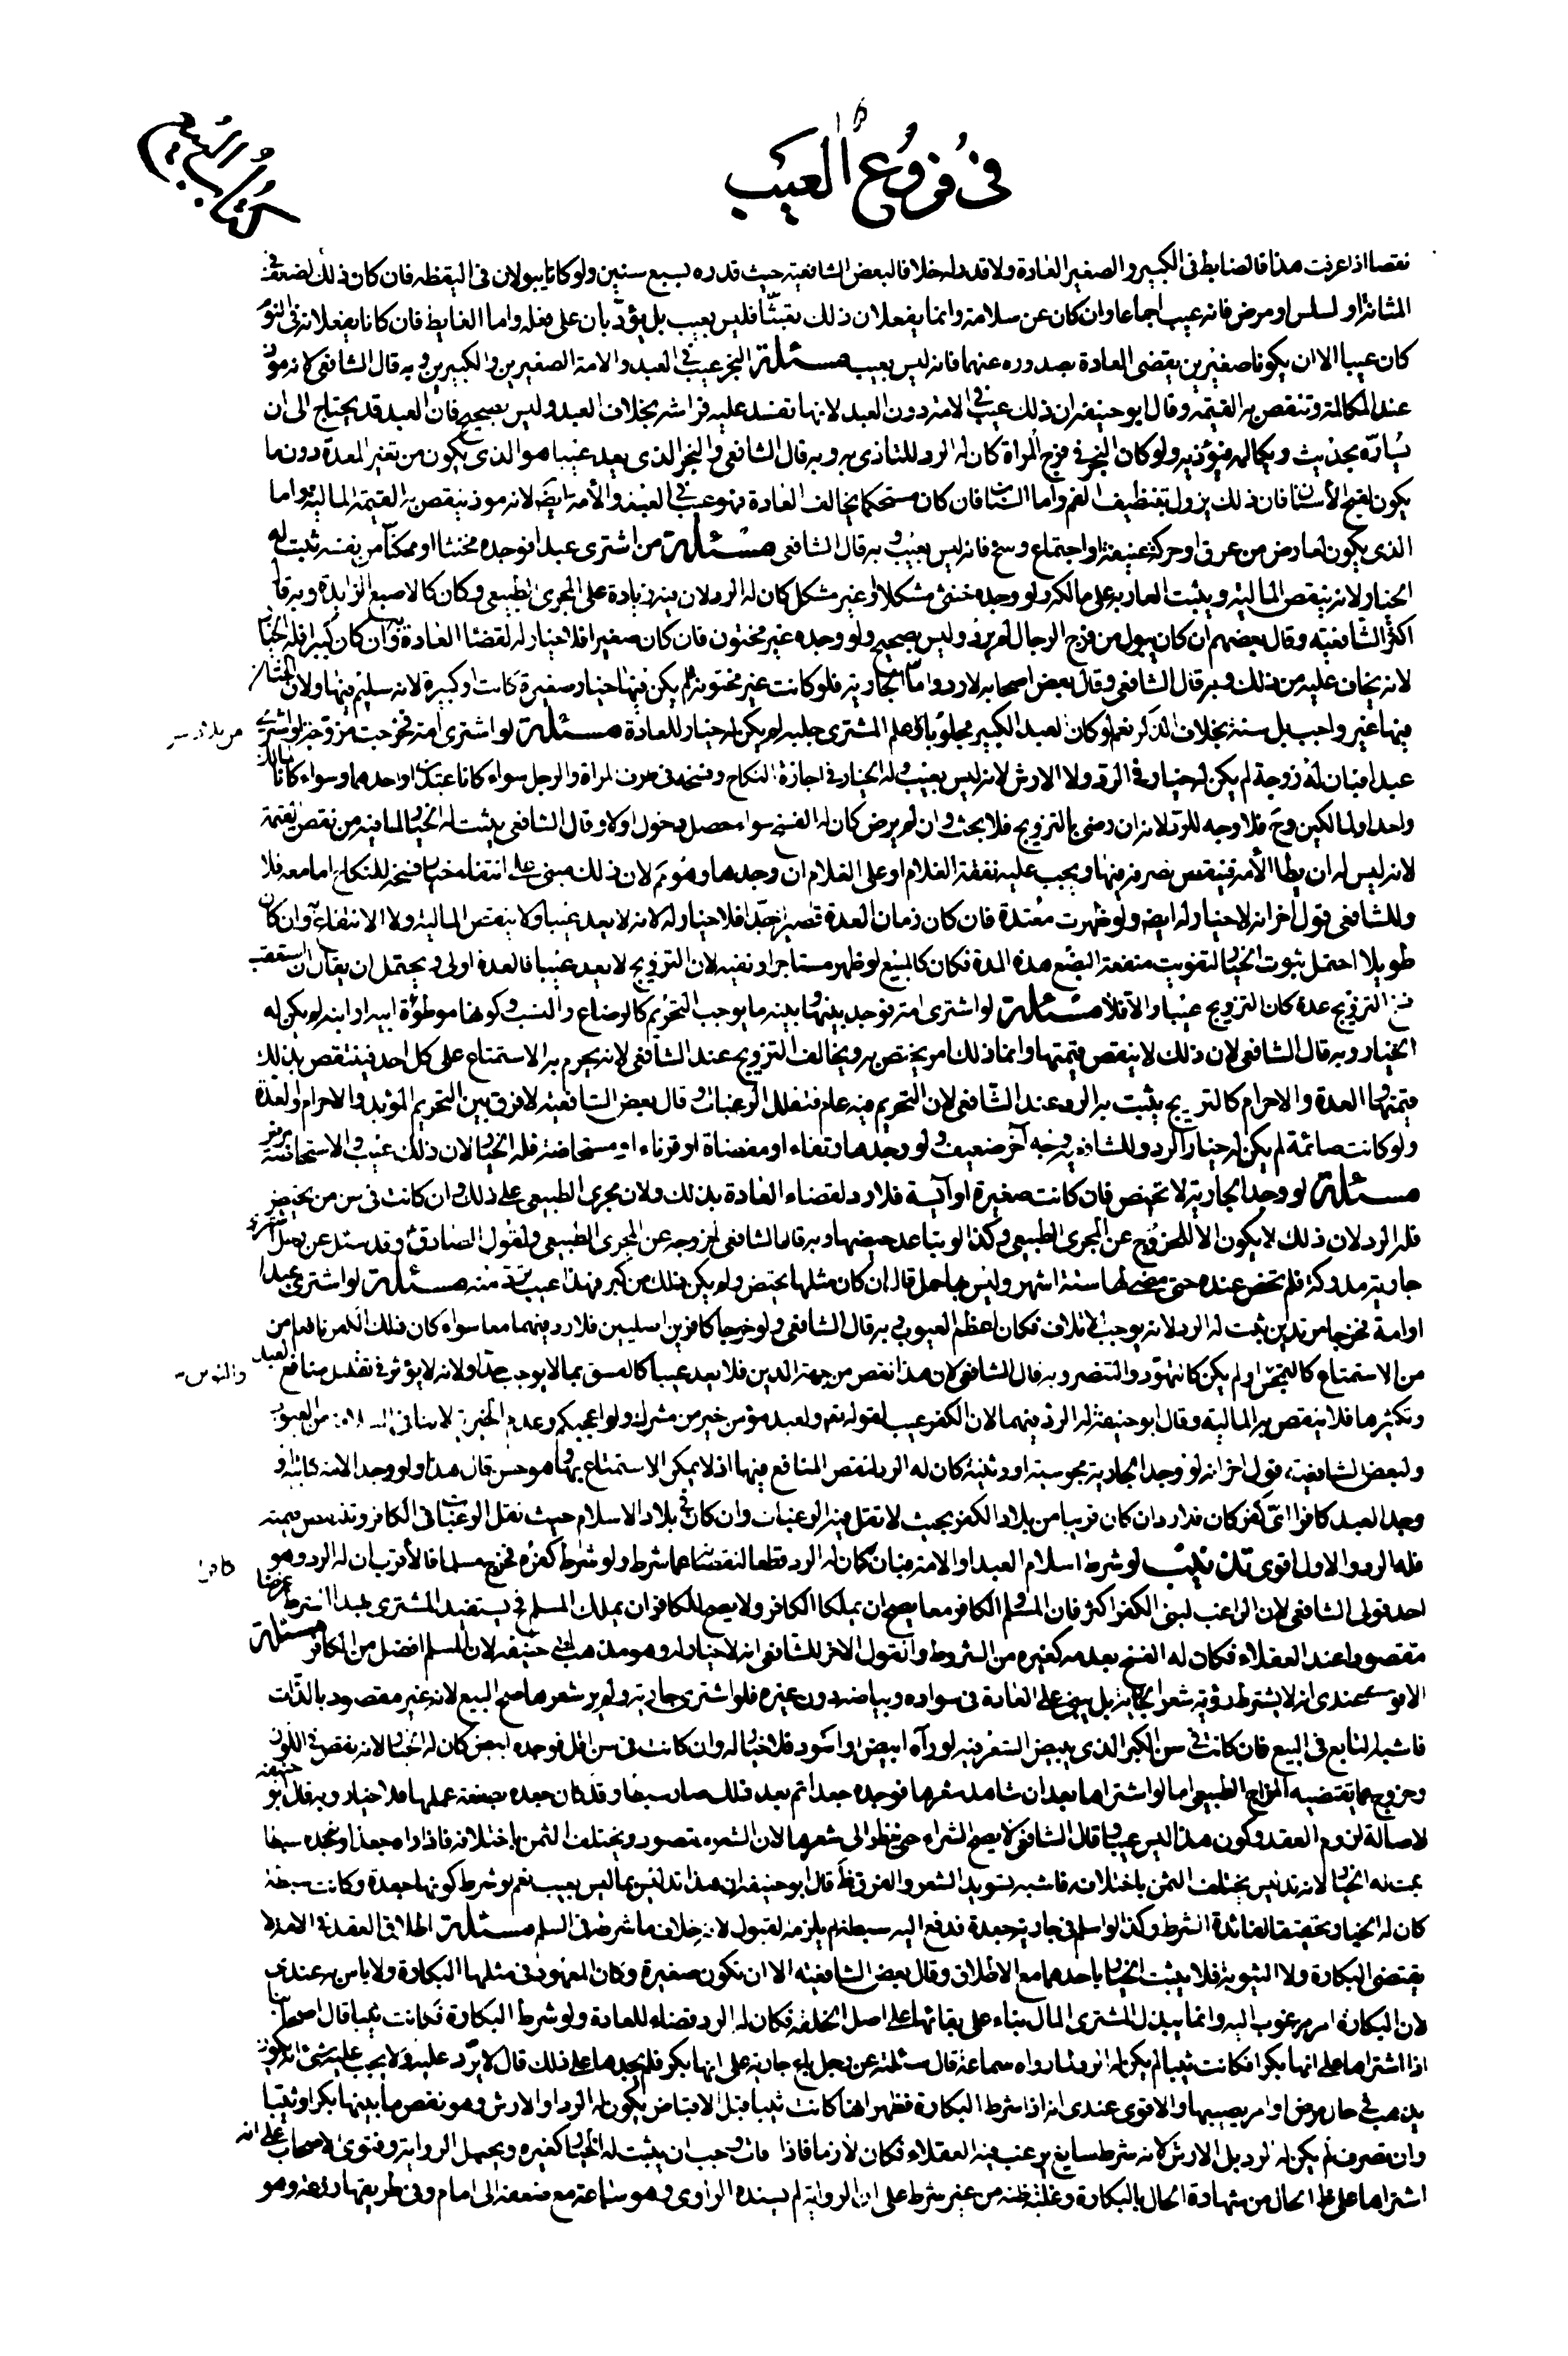 في فروع العيب
كتاب البيع
نقصا اذا عرفت هذا فالضابط في الكبير والصغير العادة ولا قدر له خلافا لبعض الشافعية حيث قدره بسبع سنين ولو كانا يبولان في اليقظه فان كان ذلك لضعف في
المثانة او لسلس او مرض فانه عيب اجماعا وان كان عن سلامة وانما يفعلان ذلك تخبثا فليس بعيب بل يؤدبان على فعله واما الغايط فان كانا يفعلانه في النوم
كان عيبا الا ان يكونا صغيرين يقتضى العادة بصدوره عنهما فانه ليس بعيب مسئلة البخر عيب في العبد والامة الصغيرين والكبيرين وبه قال الشافعى لانه موذ
عند المكالمة وتنقص به القيمة وقال ابو حنيفه ان ذلك عيب في الامة دون العبد لانها تفسد عليه فراشه بخلاف العبد وليس بصحيح فان العبد قد يحتاج الى ان
يساره بحديث ويكالمه فيؤذيه ولو كان البخر في فرج المراة كان له الرد للتاذى به وبه قال الشافعى والبخر الذى يعد عيبا هو الذى يكون من تغير المعدة دون ما
يكون لقلح الأسنان فان ذلك يزول بتنظيف الفم واما الصنان فان كان مستحكما يخالف العادة فهو عيب في العبد والأمة ايضا لانه موذ ينقص به القيمة المالية واما
الذى يكون لعارض من عرق او حركة عنيفة او اجتماع وسخ فانه ليس بعيب وبه قال الشافعى مسئلة من اشترى عبدا فوجده مخنثا او ممكنا من نفسه ثبت له
الخيار لانه ينقص المالية ويثبت العار به على مالكه ولو وجده خنثى مشكلا او غير مشكل كان له الرد لان فيه زيادة على المجرى الطبيعى وكان كالاصبع الزايدة وبه قال
اكثر الشافعيه وقال بعضهم ان كان يبول من فرج الرجال لم يرد وليس بصحيح ولو وجده غير مختون فان كان صغيرا فلا خيار له لقضاء العادة به وان كان كبيرا فله الخيار
لانه يخاف عليه من ذلك وبه قال الشافعى وقال بعض اصحابه لا رد واما الجارية فلو كانت غير مختونة لم يكن فيها خيار صغيرة كانت او كبيرة لانه سليم فيها ولان الختان
فيها غير واجب بل سنة بخلاف الذكر نعم لو كان العبد الكبير مجلوبا وعلم المشترى جلبه لم يكن له خيار للعادة مسئلة لو اشترى امة فخرجت مزوجة او اشترى
عبدا فبان له زوجة لم يكن له خيار في الرد ولا الارش لانه ليس بعيب وله الخيار في اجازة النكاح وفسخه في طرف المراة والرجل سواء كانا عبدين او احدهما وسواء كانا لمالك
واحد او لمالكين وح فلا وجه للرد لانه ان رضى بالتزويج فلا بحث وان لم يرض كان له الفسخ سواء حصل دخول اولا وقال الشافعى يثبت له الخيار لما فيه من نقص القيمة
لانه ليس له ان يطا الأمة فينقص تصرفه فيها ويجب عليه نفقة الغلام او على الغلام ان وجدها وهو ثم لان ذلك مبنى على انتفاء خيار فسخه للنكاح اما معه فلا
وللشافعى قول اخر انه لا خيار له ايضا ولو ظهرت معتدة فان كان زمان العدة قصيرا جدا فلا خيار له لانه لا يعد عيبا ولا ينقص المالية ولا الانتفاع وان كان
طويلا احتمل ثبوت الخيار لتفويت منفعة البضع هذه المدة فكان كالمبيع لو ظهر مستاجرا ونفيه لان التزويج لا يعد عيبا فالعدة اولى ويحتمل ان يقال ان استعقب
فسخ التزويج عدة كان التزويج عيبا والا فلا مسئلة لو اشترى امة فوجد بينها وبينه ما يوجب التحريم كالرضاع والنسب وكونها موطؤة ابيه او ابنه لم يكن له
الخيار وبه قال الشافعى لان ذلك لا ينقص قيمتها وانما ذلك امر يختص به ويخالف التزويج عند الشافعى لانه يحرم به الاستمتاع على كل احد فينتقص بذلك
قيمتها والعدة والاحرام كالتزويج يثبت به الرد عند الشافعى لان التحريم فيه عام فتقلل الرغبات وقال بعض الشافعيه لا فرق بين التحريم المؤبد والاحرام والعدة
ولو كانت صائمة لم يكن له خيار الرد وللشافعيه وجه آخر ضعيف ولو وجدها رتقاء او مفضاة او قرناء او مستحاضة فله الخيار لان ذلك عيب والاستحاضة مرض
مسئلة لو وجد الجارية لا تحيض فان كانت صغيرة او آيسة فلا رد لقضاء العادة بذلك ولان مجرى الطبيعى على ذلك وان كانت في سن من يحيض
فله الرد لان ذلك لا يكون الا للخروج عن المجرى الطبيعى وكذا لو تباعد حيضها وبه قال الشافعى لخروجه عن المجرى الطبيعى ولقول الصادق وقد سئل عن رجل اشترى
جارية مدركة فلم تحض عنده حتى مضى لها ستة اشهر وليس بها حمل قال ان كان مثلها تحيض ولم يكن ذلك من كبر فهذا عيب ترد منه مسئلة لو اشترى عبدا
او امة فخرجا مرتدين ثبت له الرد لانه يوجب الاتلاف فكان اعظم العيوب وبه قال الشافعى ولو خرجا كافرين اصليين فلا رد فيهما معا سواء كان ذلك الكفر مانعا من
من الاستمتاع كالتمجس او لم يكن كالتهود والتنصر وبه قال الشافعى لان هذا نقص من جهة الدين فلا يعد عيبا كالفسق بما لا يوجب حدا ولانه لا يؤثر في تقليل منافع العبد
وتكثيرها فلا ينقص به المالية وقال ابو حنيفة له الرد فيهما لان الكفر عيب لقوله تعم ولعبد مؤمن خير من مشرك ولو اعجبكم وعدم الخيرية لا ينافي السلامة من العيوب
ولبعض الشافعية قول اخر انه لو وجد الجارية مجوسية او وثنية كان له الرد لنقص المنافع فيها اذ لا يمكن الاستمتاع بها وهو حسن قال هذا ولو وجد الامة كتابية او
وجد العبد كافرا اى كفر كان فلا رد ان كان قريبا من بلاد الكفر بحيث لا تقل فيه الرغبات وان كان في بلاد الاسلام حيث تقل الرغبات في الكافر وتنقص قيمته
فله الرد والاول اقوى تذنيب لو شرط اسلام العبد او الامة فبان كافرا كان له الرد قطعا لنقصانها عما شرط ولو شرط كفره فخرج مسلما فالأقرب ان له الرد وهو
احد قولى الشافعى لان الراغب لبنى الكفر اكثر فان المسلم والكافر معا يصح ان يملكا الكافر ولا يصح للكافر ان يملك المسلم فيستفيد المشترى بهذا الشرط غرضا
مقصودا عند العقلاء فكان له الفسخ بعدمه كغيره من الشروط والقول الاخر للشافعى انه لا خيار له وهو مذهب ابى حنيفه لان المسلم افضل من الكافر مسئلة
الاقوى عندى انه لا يشترط رؤية شعر الجارية بل يبنى على العادة في سواده وبياضه دون غيره فلو اشترى جارية ولم ير شعرها صح البيع لانه غير مقصود بالذات
فاشبه التابع في البيع فان كانت في سن الكبر الذى يبيض الشعر فيه لو رآه ابيض او اسود فلا خيار له وان كانت في سن اقل فوجده ابيض كان له الخيار لانه نقص في اللون
وخروج عما يقتضيه المزاج الطبيعى اما لو اشتراها بعد ان شاهد شعرها فوجده جعدا ثم بعد ذلك صار سبطا وقد كان جعده بصنعة عملها فلا خيار وبه قال ابو حنيفه
لاصالة لزوم العقد وكون هذا ليس عيبا وقال الشافعى لا يصح الشراء حتى ينظر الى شعرها لان الشعر مقصود ويختلف الثمن باختلافه فاذا راه جعدا ووجده سبطا
يثبت له الخيار لانه تدليس يختلف الثمن باختلافه فاشبه تسويد الشعر والفرق ظ قال ابو حنيفه ان هذا تدليس بما ليس بعيب نعم لو شرط كونها جعدة وكانت سبطة
كان له الخيار تحقيقا لفائدة الشرط وكذا لو اسلم في جارية جعدة فدفع اليه سبطة لم يلزمه القبول لانه خلاف ما شرط في السلم مسئلة اطلاق العقد في الامة لا
يقتضى البكارة ولا الثيوبة فلا يثبت الخيار باحدهما مع الاطلاق وقال بعض الشافعيه الا ان تكون صغيرة وكان المعهود في مثلها البكارة ولا باس به عندى
لان البكارة امر مرغوب اليه وانما يبذل المشترى المال بناء على بقائها على اصل الخلقة فكان له الرد قضاء للعادة ولو شرط البكارة فكانت ثيبا قال اصحابنا
اذا اشتراها على انها بكر فكانت ثيبا لم يكن له الرد لما رواه سماعة قال سئلته عن رجل باع جارية على انها بكر فلم يجدها على ذلك قال لا يرد عليه ولا يجب عليه شئ انه يكون
يذهب في حال مرض او امر يصيبها والاقوى عندى انه اذا شرط البكارة فظهر انها كانت ثيبا قبل الاقباض يكون له الرد او الارش وهو نقص ما بينها بكرا وثيبا
وان تصرف لم يكن له الرد بل الارش لانه شرط سايغ يرغب فيه العقلاء فكان لازما فاذا فات وجب ان يثبت له الخيار كغيره ويحمل الرواية وفتوى الاصحاب على انه
اشتراها على ظ الحال من شهادة الحال بالبكارة وغلبة ظنه من غير شرط على ان الرواية لم يسنده الراوى وهو سماعة مع ضعفه الى امام وفى طريقها زرعة وهو